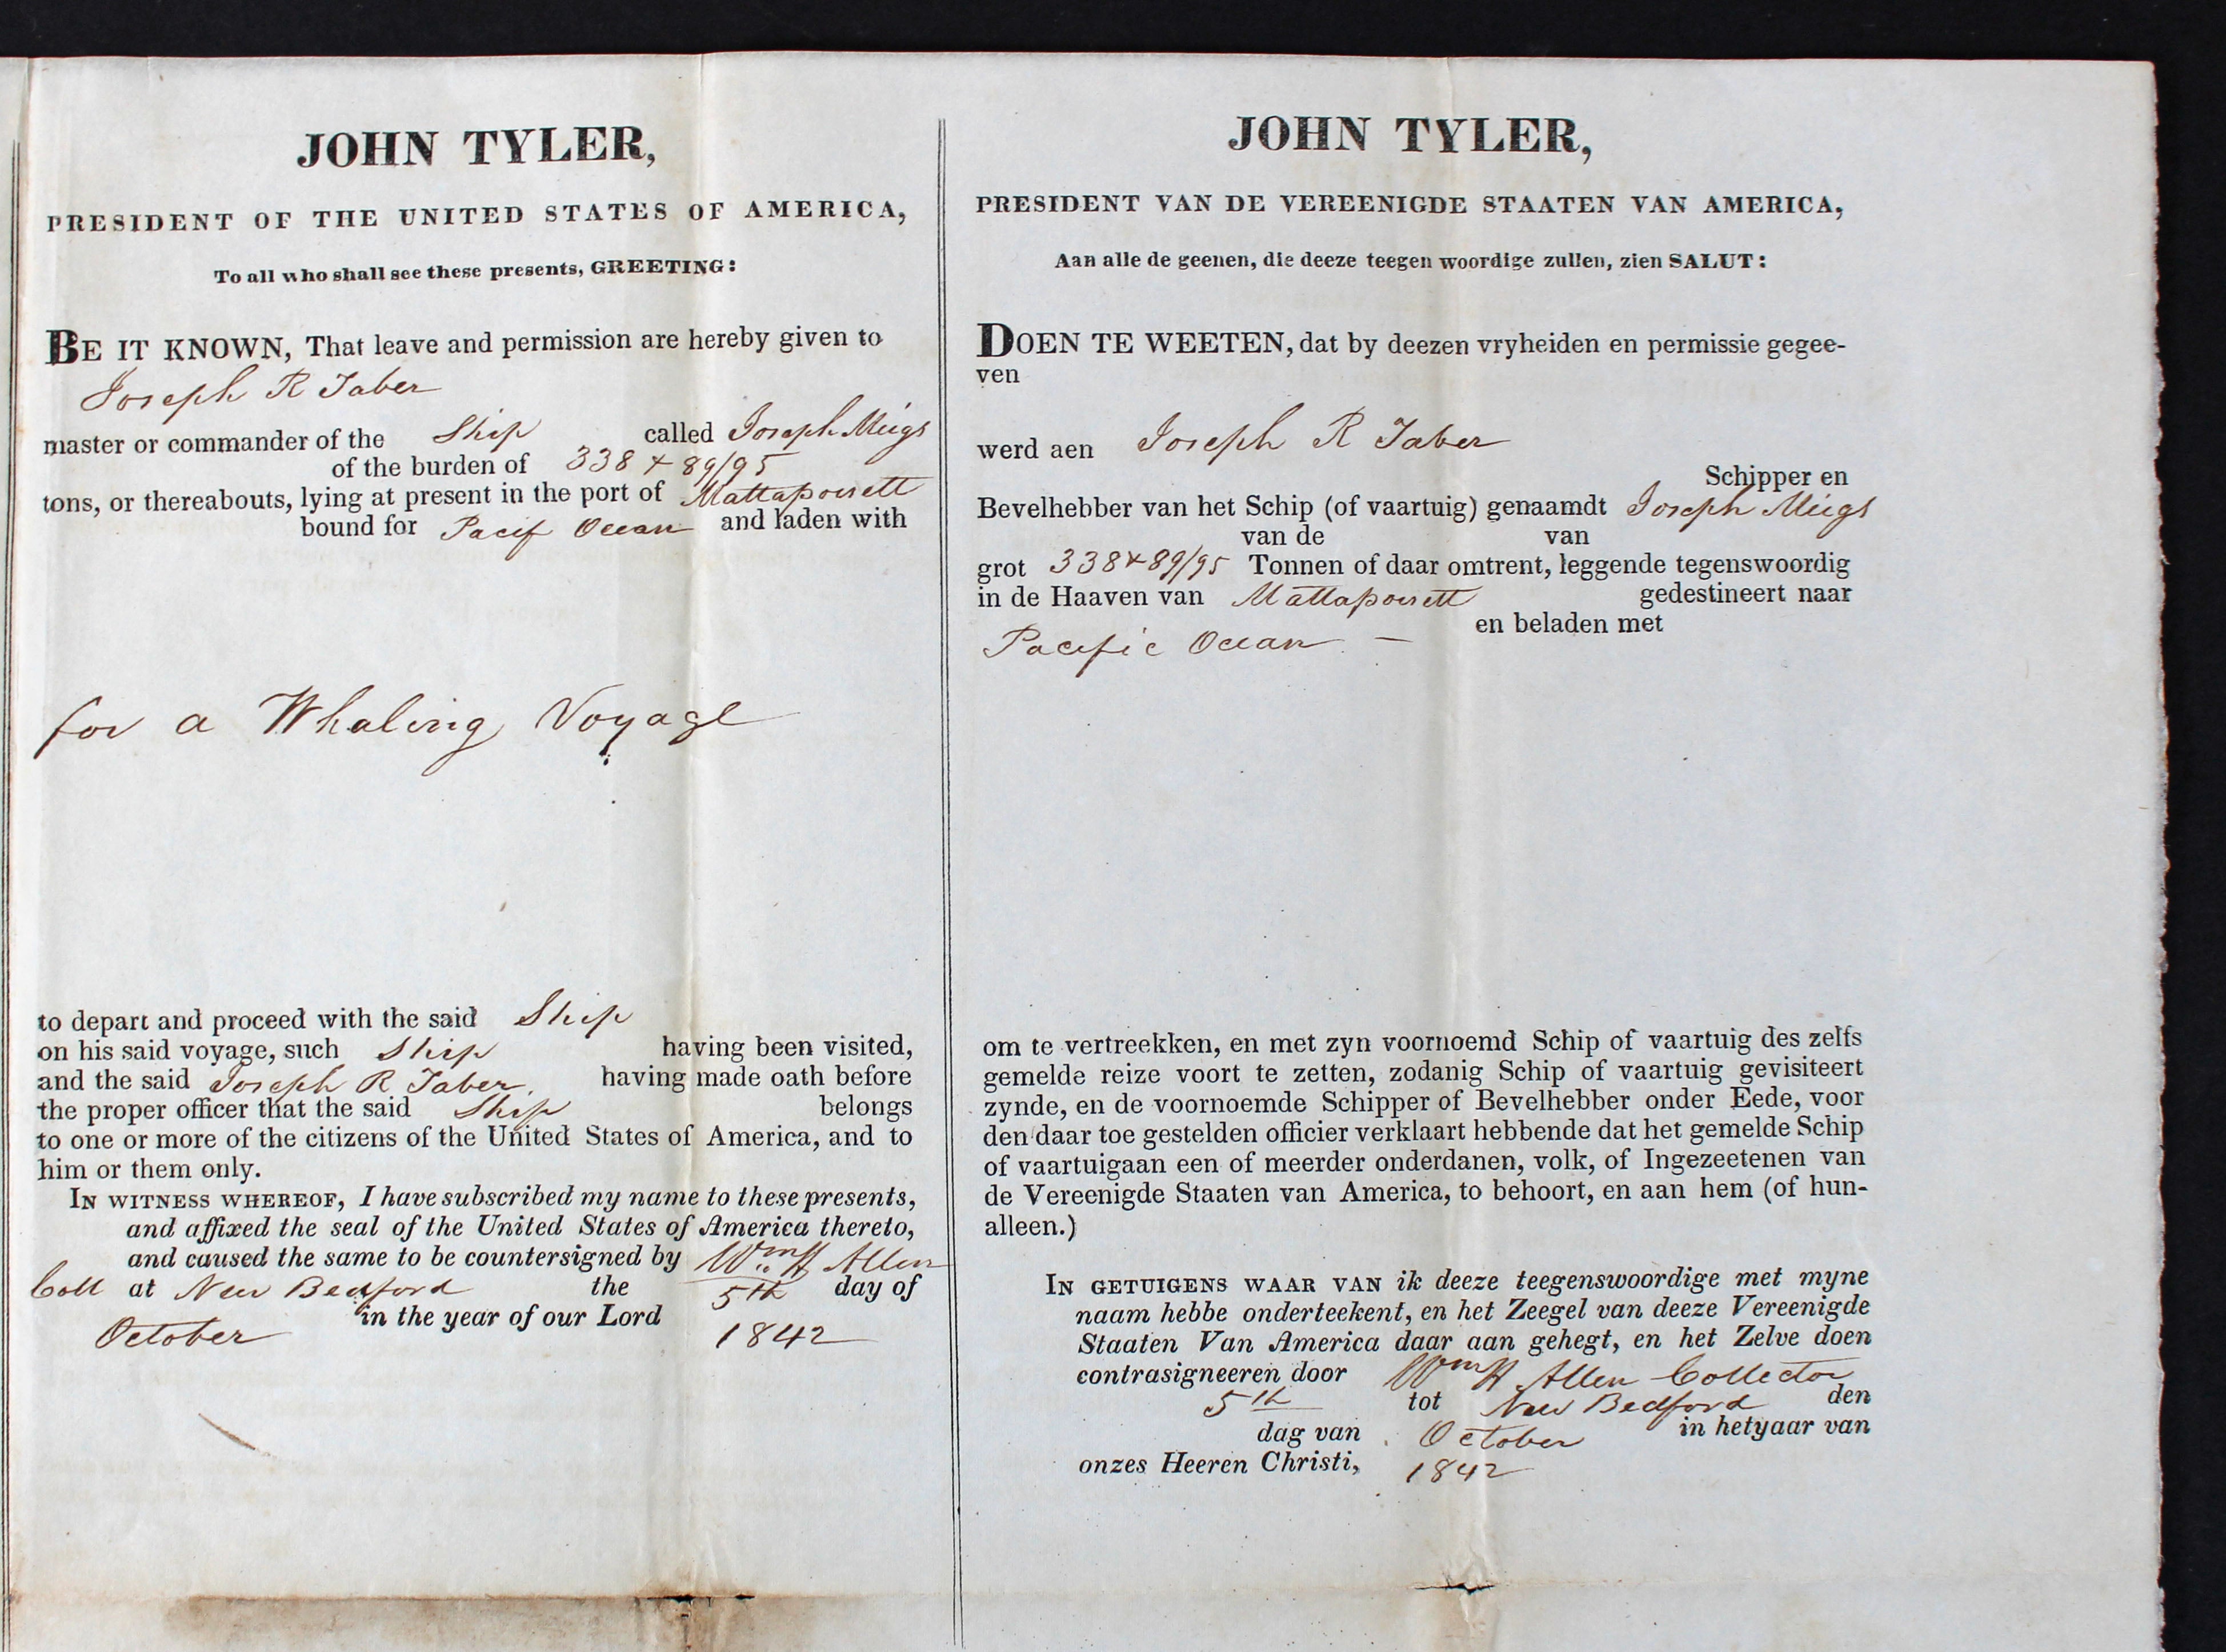 JOHN TYLER,
PRESIDENT OF THE UNITED STATES OF AMERICA,
To all who shall see these presents, GREETING:
BE IT KNOWN, That leave and permission are hereby given to
Joseph R Taber
master or commander of the Ship called Joseph Meigs
of the burden of 338 + 89/95
tons, or thereabouts, lying at present in the port of Mattapoisett
bound for Pacif Ocean and laden with
for a Whaling Voyage
to depart and proceed with the said Ship
on his said voyage, such Ship having been visited,
and the said Joseph R Taber having made oath before
the proper officer that the said Ship belongs
to one or more of the citizens of the United States of America, and to
him or them only.
IN WITNESS WHEREOF, I have subscribed my name to these presents,
and affixed the seal of the United States of America thereto,
and caused the same to be countersigned by Wm H Allen
Coll at New Bedford the 5th day of
October in the year of our Lord 1842
JOHN TYLER,
PRESIDENT VAN DE VEREENIGDE STAATEN VAN AMERICA,
Aan alle de geenen, die deeze teegen woordige zullen, zien SALUT:
DOEN TE WEETEN, dat by deezen vryheiden en permissie gegee-
ven
werd aen Joseph R Taber
Schipper en
Bevelhebber van het Schip (of vaartuig) genaamdt Joseph Meigs
van de van
grot 338+89/95 Tonnen of daar omtrent, leggende tegenswoordig
in de Haaven van Mattapoisett gedestineert naar
Pacific Ocean — en beladen met
om te vertreekken, en met zyn voornoemd Schip of vaartuig des zelfs
gemelde reize voort te zetten, zodanig Schip of vaartuig gevisiteert
zynde, en de voornoemde Schipper of Bevelhebber onder Eede, voor
den daar toe gestelden officier verklaart hebbende dat het gemelde Schip
of vaartuigaan een of meerder onderdanen, volk, of Ingezeetenen van
de Vereenigde Staaten van America, to behoort, en aan hem (of hun-
alleen.)
IN GETUIGENS WAAR VAN ik deeze teegenswoordige met myne
naam hebbe onderteekent, en het Zeegel van deeze Vereenigde
Staaten Van America daar aan gehegt, en het Zelve doen
contrasigneeren door Wm H Allen Collector
5th tot New Bedford den
dag van October in hetyaar van
onzes Heeren Christi, 1842